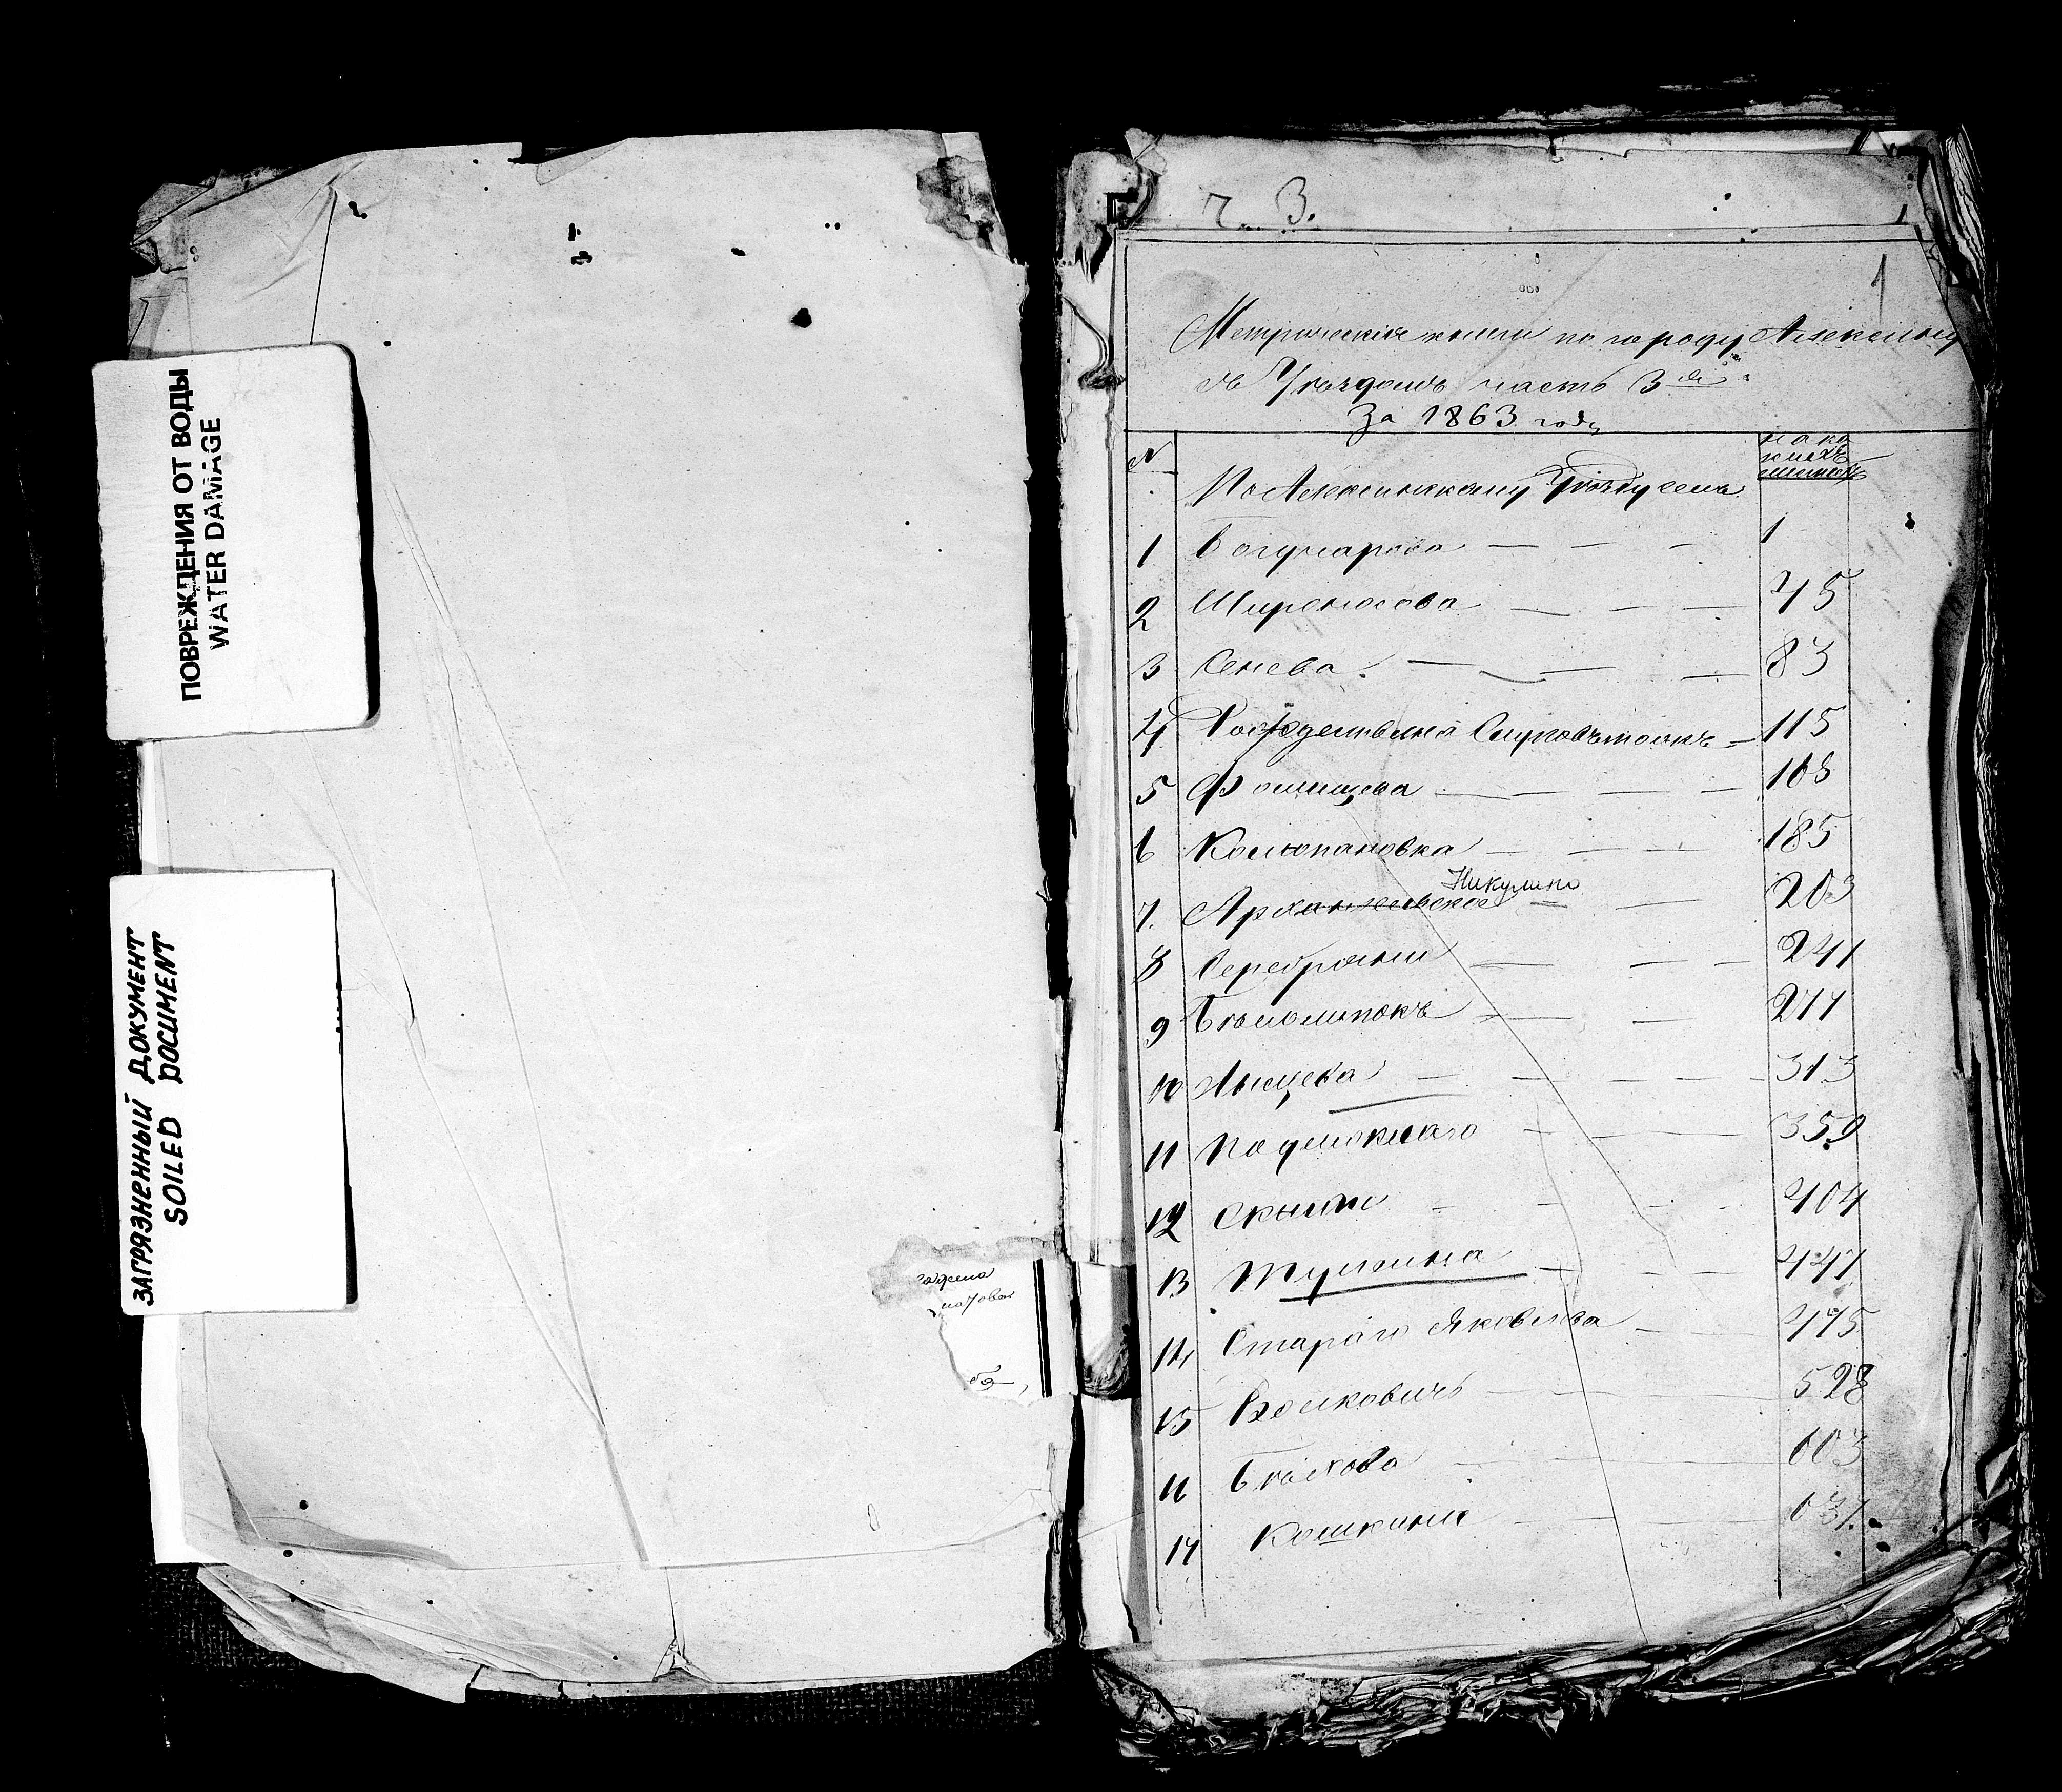 ПОВРЕЖДЕНИЯ ОТ ВОДЫ
WATER DAMAGE
ЗАГРЯЗНЕННЫЙ ДОКУМЕНТ
SOILED DOCUMENT
ч. 3.
1
Метрическія книги по городу Алексину
съ Уѣздомъ часть 3
За 1863 годъ
№
на ка
кихъ
листахъ
По Алексинскому Уѣзду селъ
1 Боучарова — — — 1
2 Широносова — — — 75
3 Сенева — — — 83
4 Рождествена 115
5 Фомищева — — — — 168
6 Колюпановка — — — 185
7. Архангельское Никулино — — 203
8 Серебряни — — — 241
9 Бѣлолипокъ — — 277
10 Лыщева — — — — — 313
11 Подмоклаго — — — 359
12 Скниги — — — — 404
13 Тулеина — — 447
14 Стараго Яковлева — — 475
15 Волковичъ — — 528
16 Бѣлхова — — 603
17 Кошкина — — 637